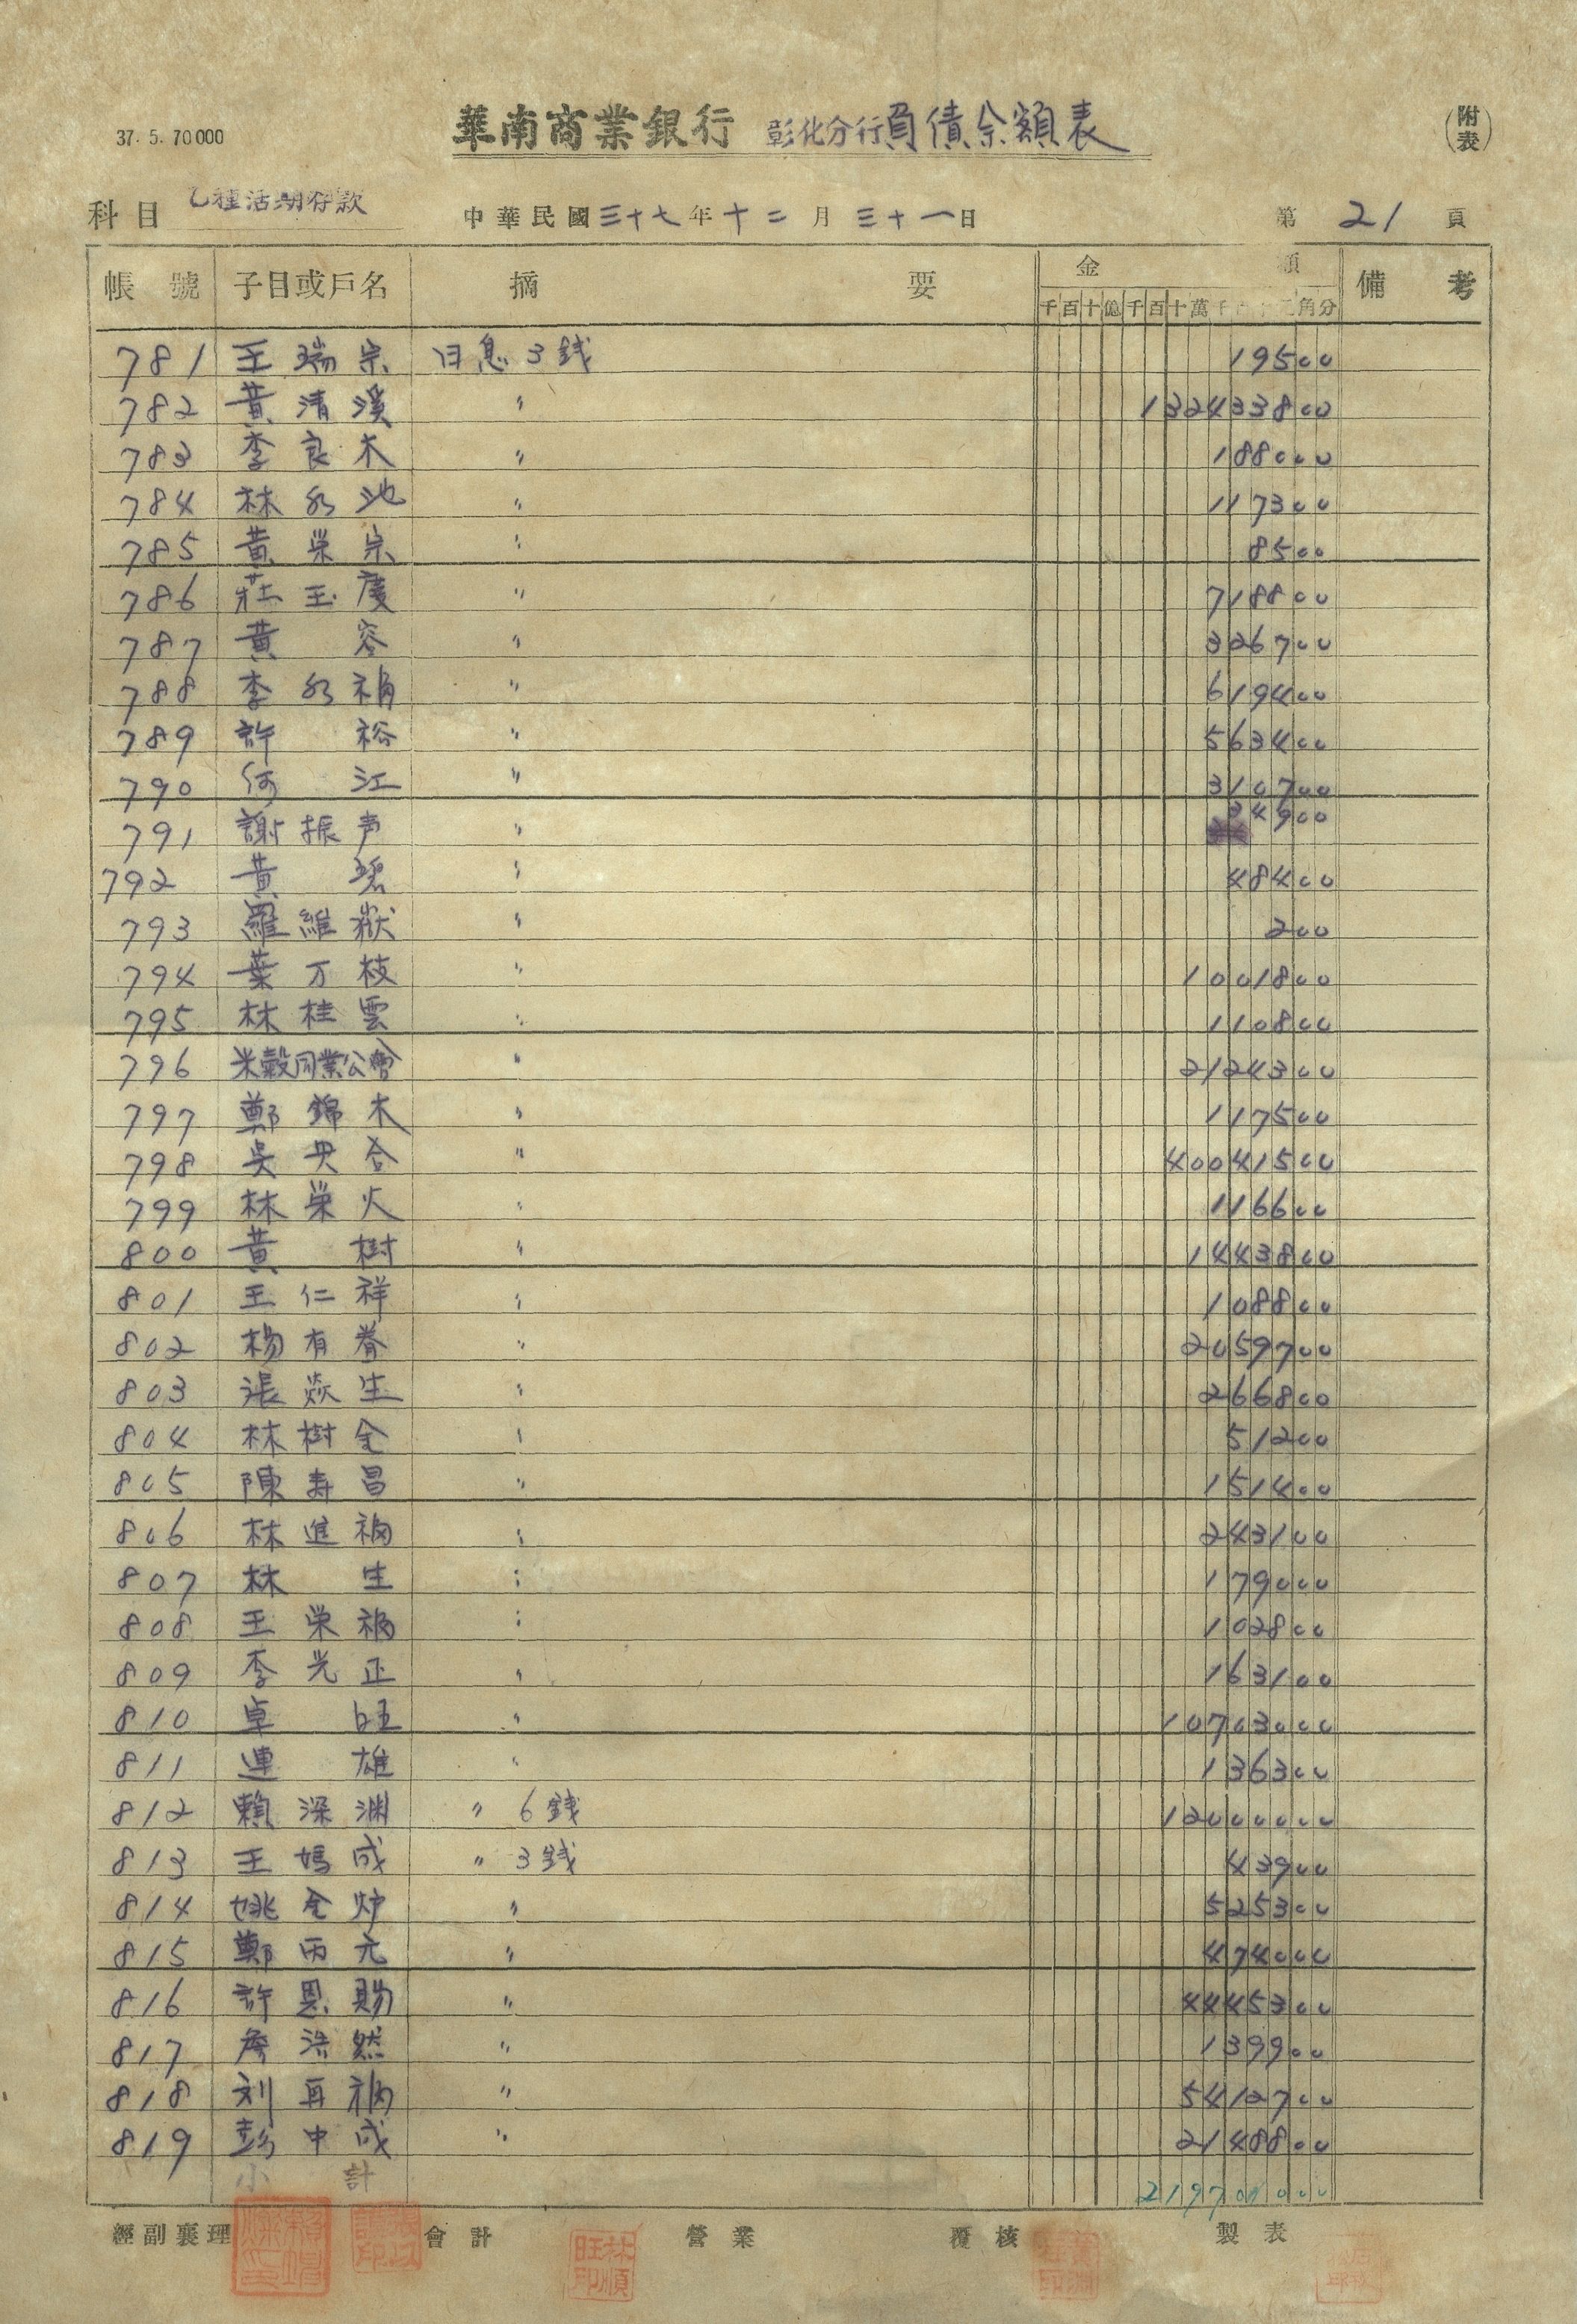 37. 5. 70000
華南商業銀行 彰化分行負債余額表
(附表)
科目 乙種活期存款 中華民國三十七年十二月三十一日 第 21 頁
帳號 子目或戶名 摘要 金額 備考
千百十億千百十萬千 元角分
781 王瑞宗 日息3錢 19500
782 黃清溪 〃 132433800
783 李良木 〃 188000
784 林水池 〃 117300
785 黃栄宗 〃 8500
786 莊玉慶 〃 718800
787 黃容 〃 326700
788 李水福 〃 619400
789 許裕 〃 563400
790 何江 〃 310700
791 謝振声 〃 24900
792 黃 〃 48400
793 羅維嶽 〃 200
794 葉万枝 〃 1001800
795 林桂雲 〃 110800
796 米穀同業公會 〃 2124300
797 鄭錦木 〃 117500
798 吳 〃 40041500
799 林栄火 〃 116600
800 黃樹 〃 1443800
801 王仁祥 〃 108800
802 楊有 〃 2059700
803 張焱生 〃 266800
804 林樹金 〃 51200
805 陳寿昌 〃 151400
806 林進福 〃 243100
807 林生 〃 179000
808 王栄福 〃 102800
809 李光正 〃 163100
810 卓旺 〃 10703000
811 連雄 〃 136300
812 賴深渊 〃 6錢 12000000
813 王媽成 〃 3錢 43900
814 姚金炉 〃 525300
815 鄭丙元 〃 474000
816 許恩賜 〃 4445300
817 詹浩然 〃 139900
818 刘再福 〃 5412700
819 彭中成 〃 2148800
小計 219700000
經副襄理 會計 營業 覆核 製表
林順旺印